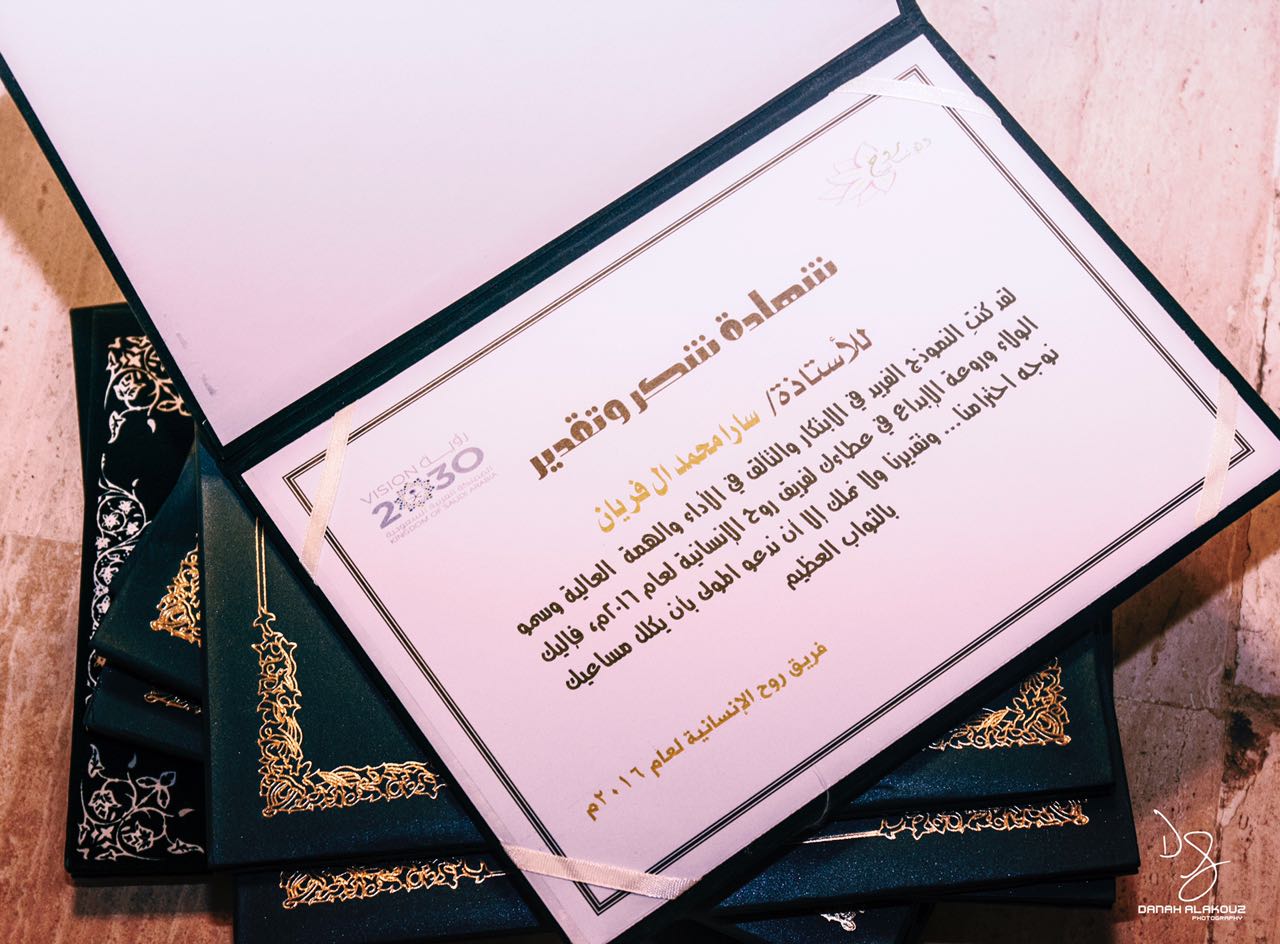 روح
شهادة شكر وتقدير
للأستاذة/ سارا محمد ال فريان
لقد كنتِ النموذج الفريد في الابتكار والتألق في الأداء والهمة العالية وسمو
الولاء وروعة الإبداع في عطاءك لفريق روح الإنسانية لعام ٢٠١٦م، فإليك
نوجه احترامنا... وتقديرنا ولا نملك الا أن ندعو المولى بأن يكلل مساعيك
بالثواب العظيم
فريق روح الإنسانية لعام ٢٠١٦م
VISION رؤيــــة
2030
المملكة العربية السعودية
KINGDOM OF SAUDI ARABIA
DANAH ALAKOUZ
PHOTOGRAPHY